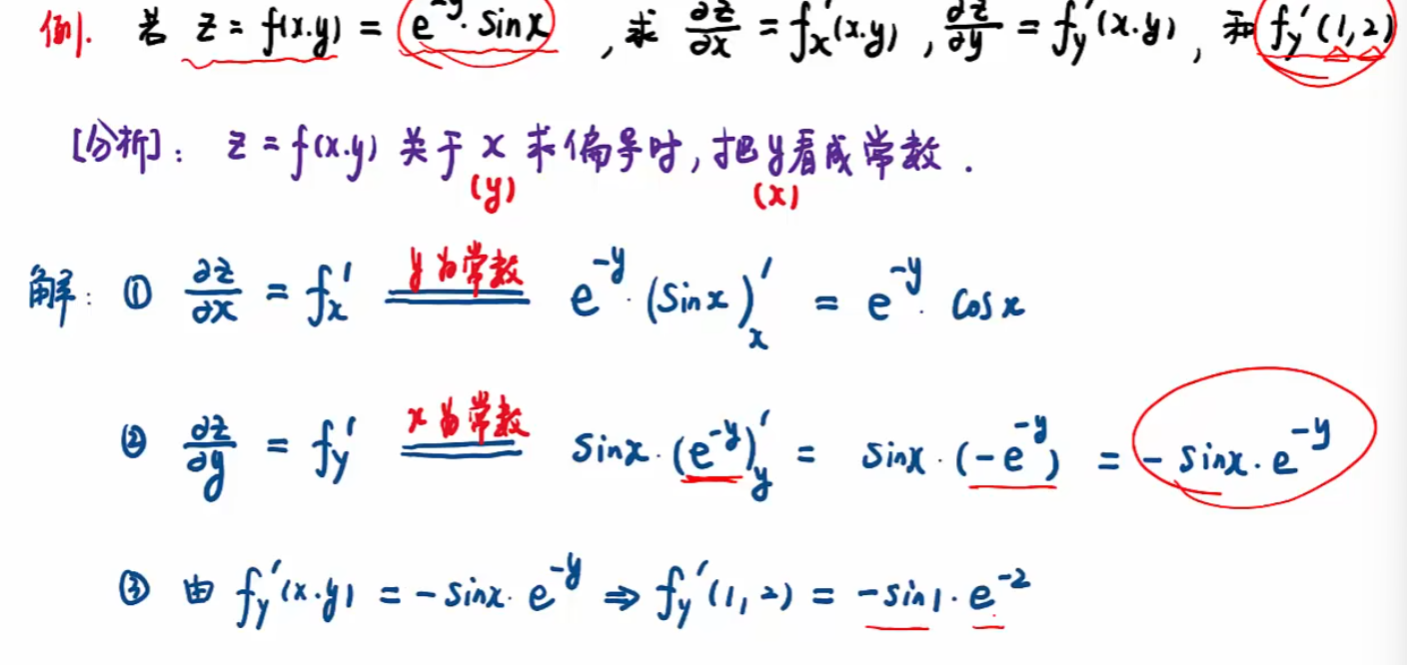 例. 若 z = f(x.y) = e^-y · sinx , 求 ∂z/∂x = fx'(x.y) , ∂z/∂y = fy'(x.y) , 和 fy'(1,2)
[分析]: z = f(x.y) 关于 x 求偏导时, 把 y 看成常数 .
(y) (x)
解: ① ∂z/∂x = fx' y为常数 e^-y · (Sinx)'x = e^-y · cosx
② ∂z/∂y = fy' x为常数 sinx · (e^-y)'y = sinx · (-e^-y) = - sinx · e^-y
③ 由 fy'(x.y) = - sinx · e^-y ⇒ fy'(1,2) = -sin1 · e^-2